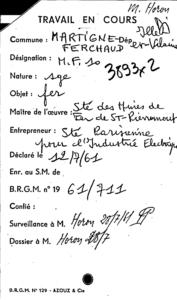 M. Horon
TRAVAIL EN COURS
Commune : MARTIGNE-
FERCHAUD
Désignation : M.F. 10
3893x2
Nature : sge
Objet : fer
Maître de l'œuvre : Sté des Mines de
Fer de St-Pierremont
Entrepreneur : Sté Parisienne
pour l'Industrie Electrique
Déclaré le 12/7/61
Enr. au S.M. de
B.R.G.M. n° 19 61/711
Confié :
Surveillance à M. Horon 20/7/61
Dossier à M. Horon 28/7
B.R.G.M. N° 129 - AZOUZ & Cie